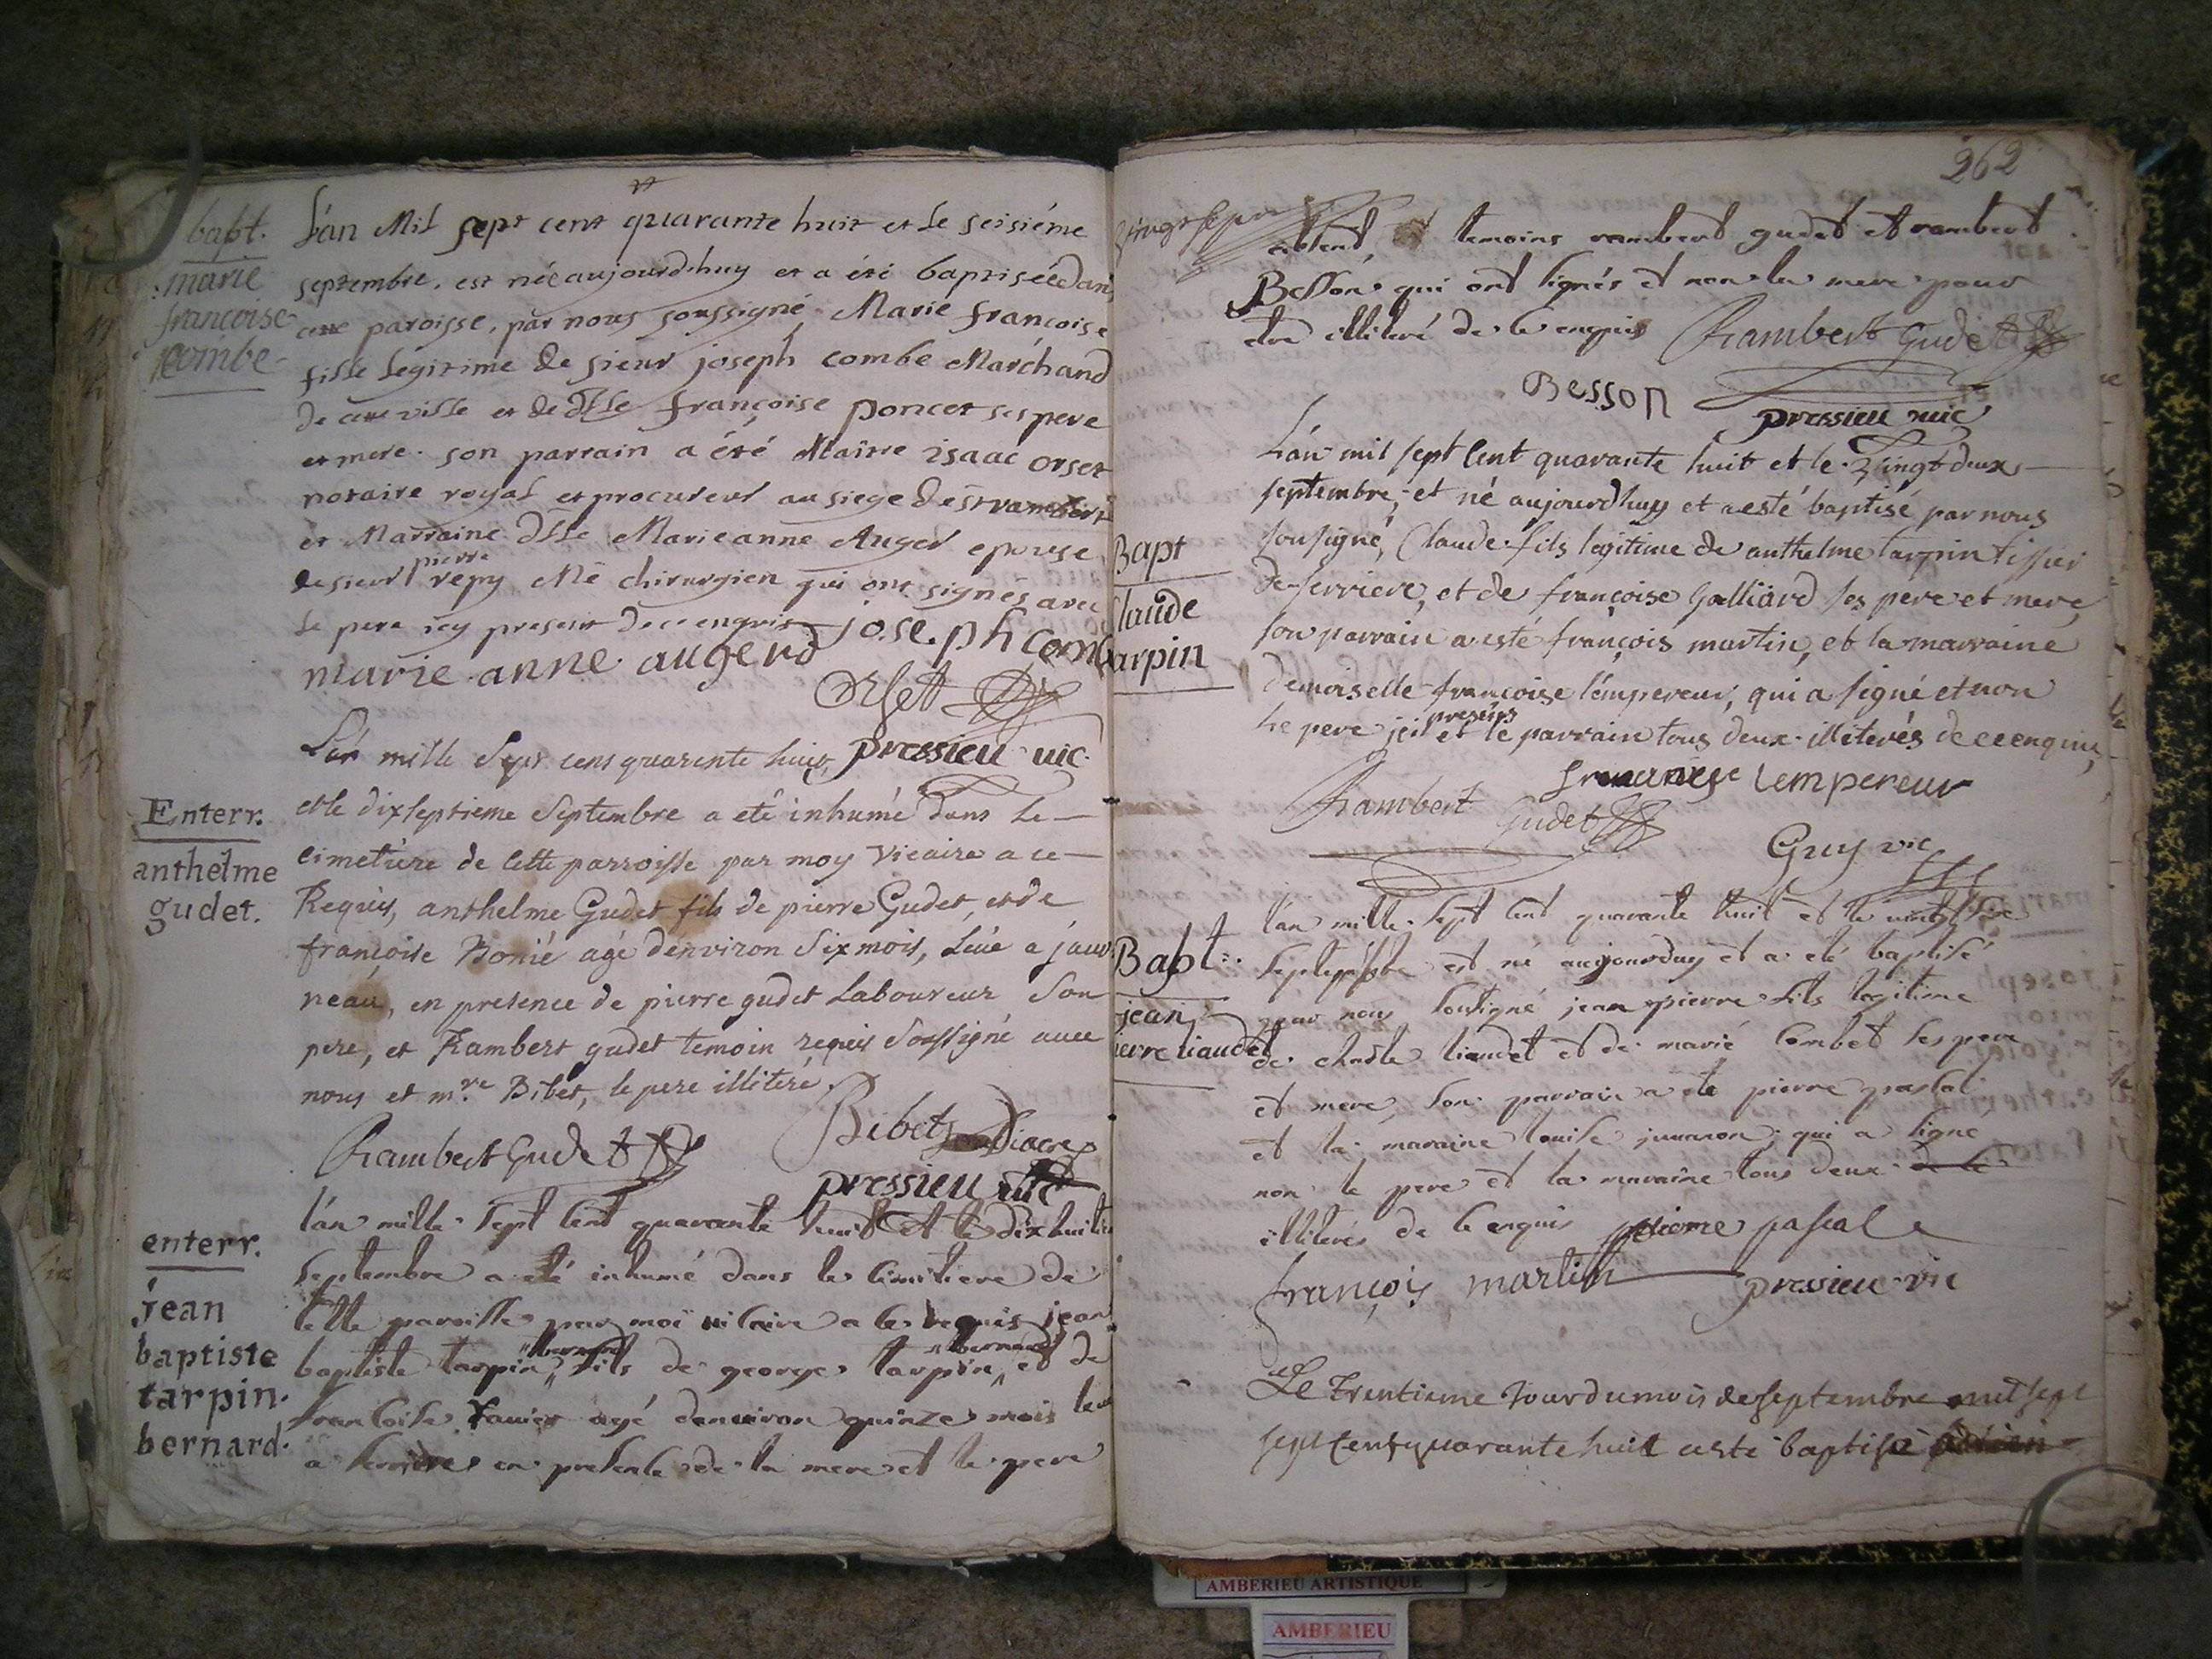 bapt.
marie
françoise
combe
L'an Mil sept cent quarante huit et le seisiéme
septembre. est née aujourd'huy et a été baptisée dans
cette paroisse, par nous soussigné Marie françoise
fille légitime de sieur joseph combe Marchand
de cette ville et de dlle françoise poncet ses pere
et mere. son parrain a été Maitre isaac orset
notaire royal et procureur au siege de st rambert
et Marraine dlle Marie anne Auger epouse
de sieur pierre repy Me chirurgien qui ont signés avec
le pere icy present de ce enquis joseph combe
marie anne augerd
Orset
pressieu vic.
Enterr.
anthelme
gudet.
L'an mille Sept cens quarente huit,
et le dixseptieme Septembre a eté inhumé dans Le
cimetiere de cette parroisse par moy Vicaire a ce
Requis, anthelme Gudet fils de pierre Gudet, et de
françoise Bonié agé denviron Six mois, Léué a jauor
neau, en presence de pierre gudet Laboureur Son
pere, et Rambert gudet temoin requis Soussigné avec
nous et m.re Bibet, le pere illiteré.
Rambert Gudet
Bibet Diacre
pressieu vic
enterr.
jean
baptiste
tarpin.
bernard.
l'an mille sept cent quarante huit et le dix huitie
septembre a eté inhumé dans le cimitiere de
cette paroisse par moi vicaire a ce requis jean
baptiste tarpin bernard fils de george tarpin bernard et de
francoise agé denuiron quinze mois leué
a serriere en presence de la mere et le pere
262
absent, et temoins rambert gudet et rambert
Besson qui ont signés et non la mere pour
etre illiteré de ce enquis Rambert Gudet
Besson
pressieu vic
Bapt
Claude
tarpin
L'an mil sept cent quarante huit et le vingt deux
septembre, et né aujourdhuy et a esté baptisé par nous
sousigné, Claude fils legitime de anthelme tarpin tissier
de serriere, et de françoise Galliard ses pere et mere,
son parrain a esté françois martin, et la marraine
demoiselle françoise l'empereur, qui a signé et non
le pere jci presens et le parrain tous deux illiterés de ce enquis,
francoise Lempereur
Rambert Gudet
Guy vic
Bapt.
jean
pierre liaudet
l'an mille sept cent quarante huit et le
septembre est né aujourduy et a eté baptisé
par nous sousigné jean pierre fils legitime
de charle liaudet et de marie Combet ses pere
et mere, son parrain a eté pierre pascal
et la maraine louise juuanon, qui a signé
non le pere et la maraine tous deux de ce
illiterés de ce enquis pierre pascal
françois martin pressieu vic
Le Trentieme Jour du mois de septembre mil sept
sept cent quarante huit a esté baptisé
AMBERIEU ARTISTIQUE
AMBERIEU